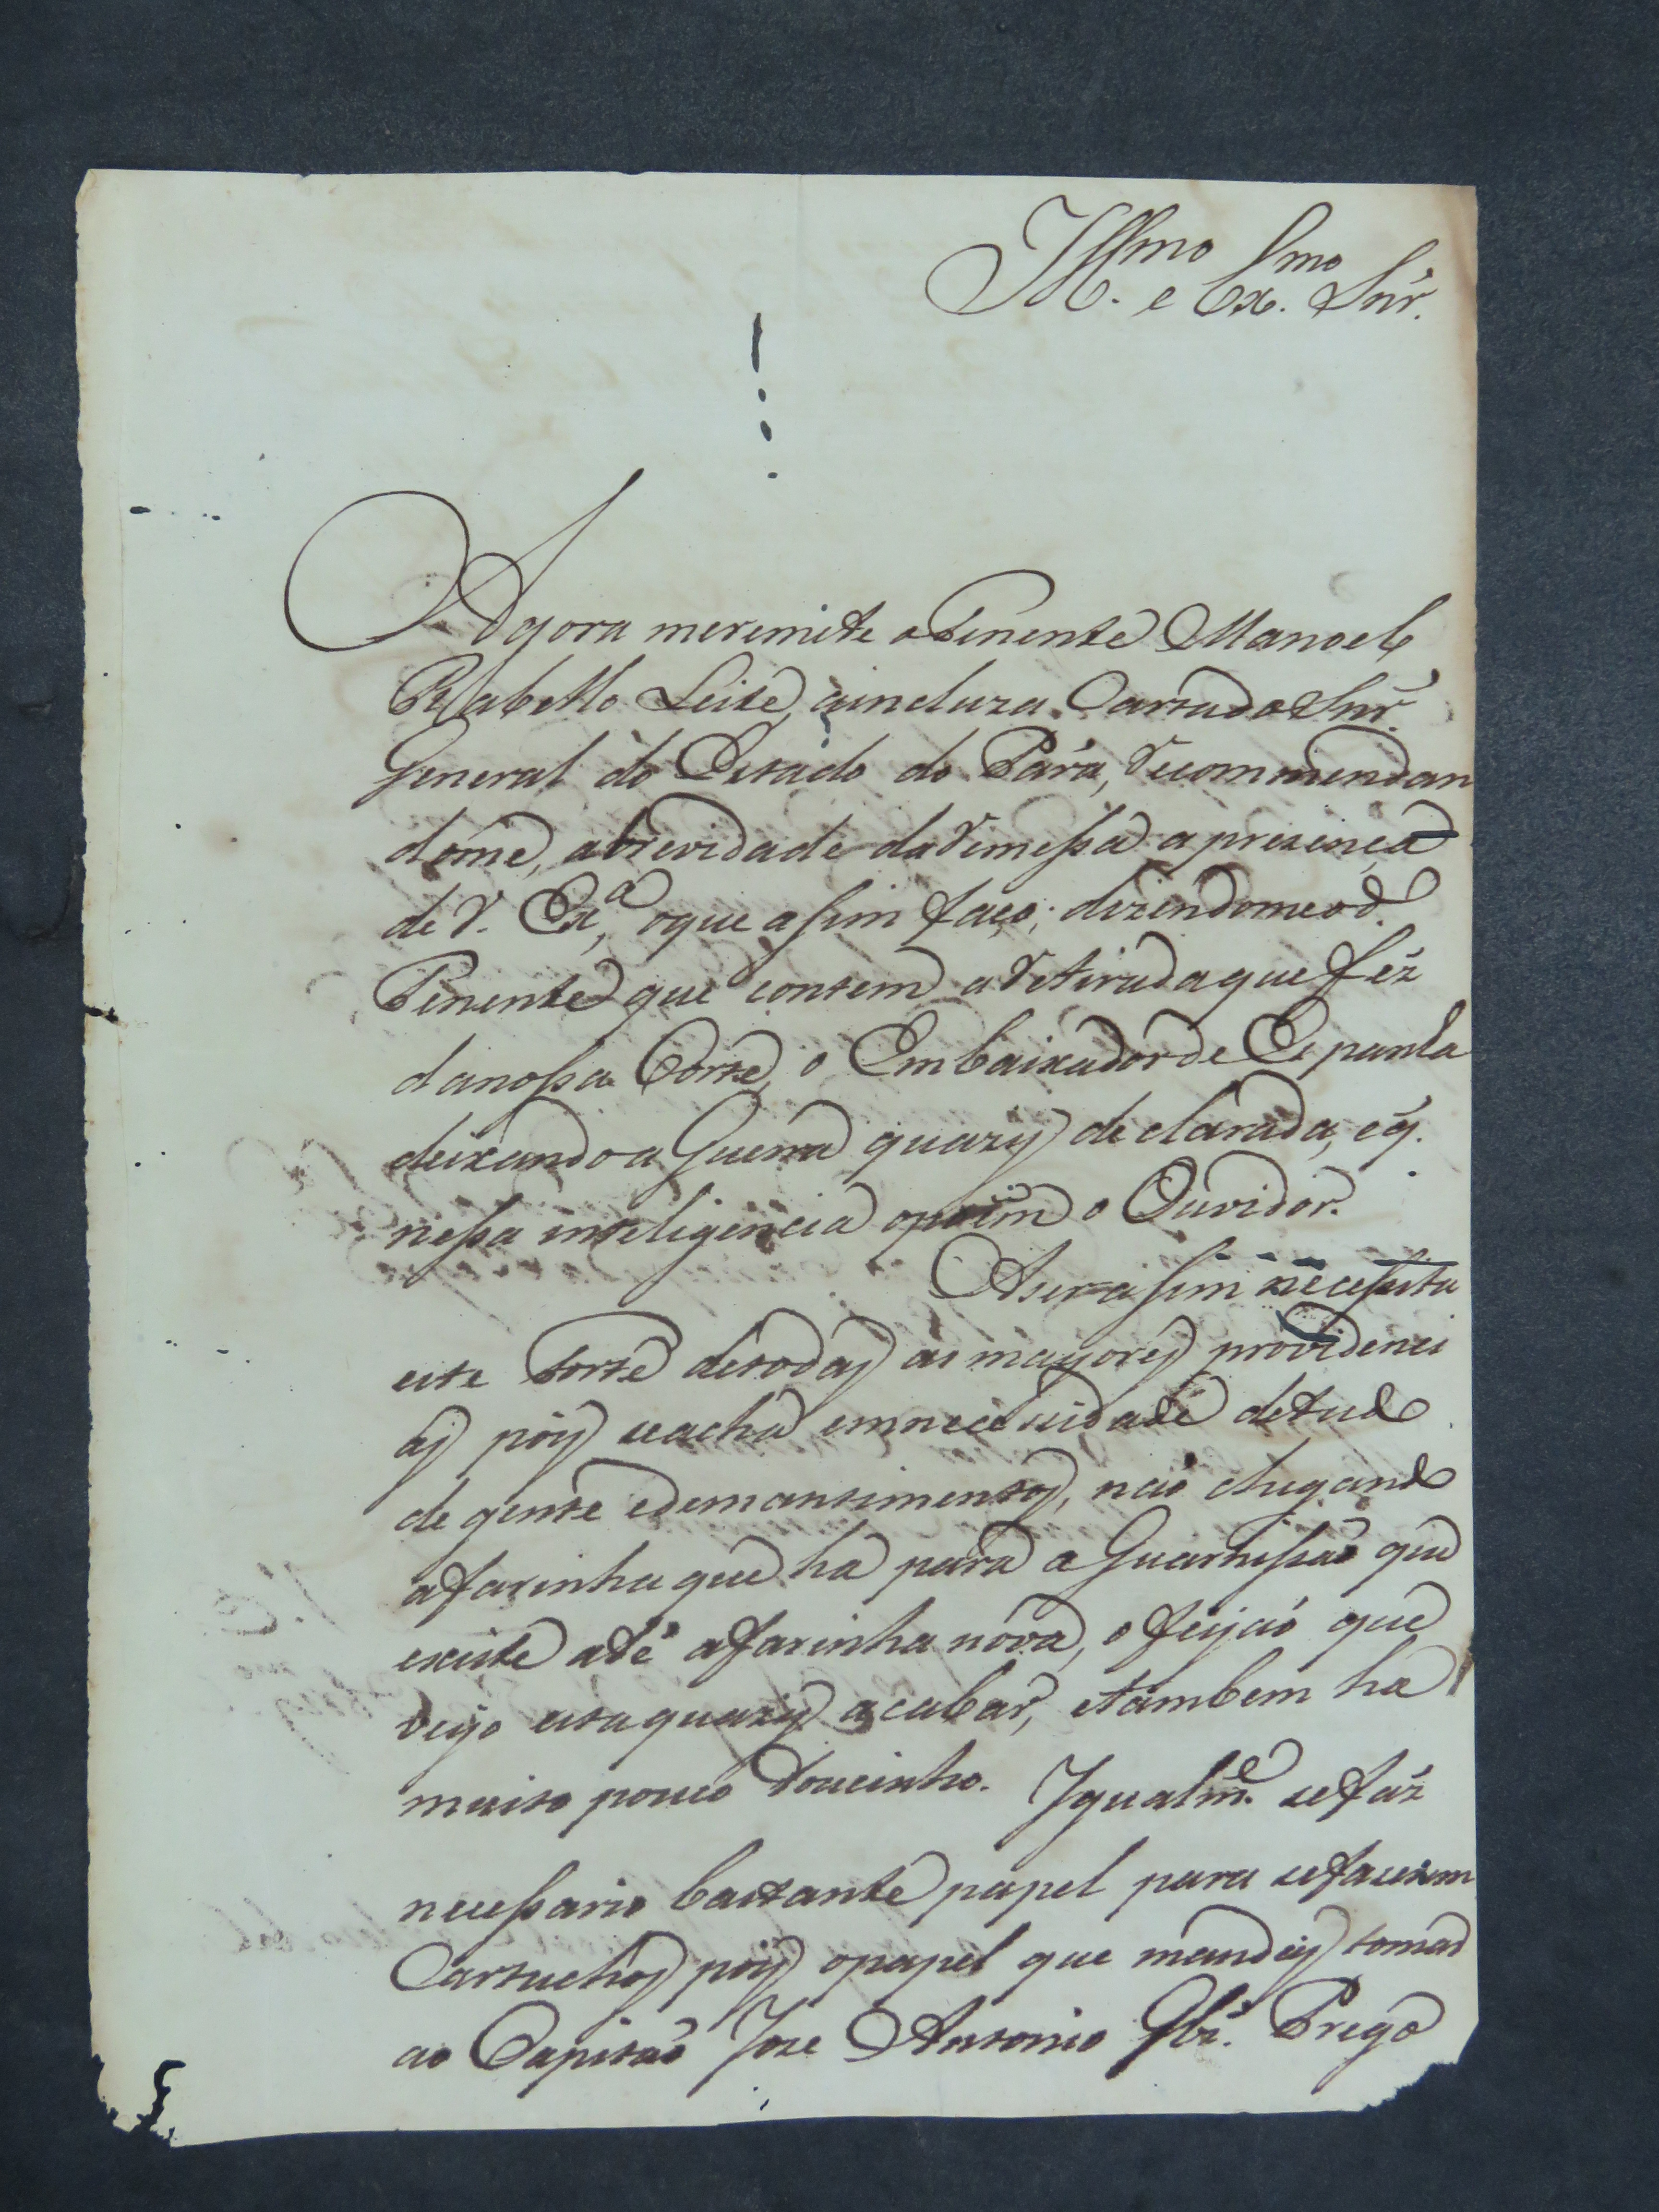 Illmo e Exmo Snr.
Agora meremete o Tenente Manoel
Rabello Leite, aincluza Carta do Snr.
General do Estado do Pará, recommendan
dome, abrevidade daremessa a prezença
de V. Exa, oque assim faço; dizendome o d.
Tenente que contem aretirada que féz
danossa Corte, o Embaixador de Espanha
deixando a Guerra quazy declarada, e q.
nessa inteligencia o Ouvidor.
A ser assim necessita
este Forte detodas as mayores providenci
as pois seacha emnecessidade detudo
de gente edemantimentos, naó chegando
afarinha que ha para a Guarnissaó que
existe até afarinha nóva, o feijaó que
vejo esta quazy acabar, etambem ha
muito pouco toucinho. Igualme. sefáz
necessario bastante papel para sefazerem
Cartuchos pois opapel que mandey tomar
ao Capitaó Joze Antonio Glz. Prego